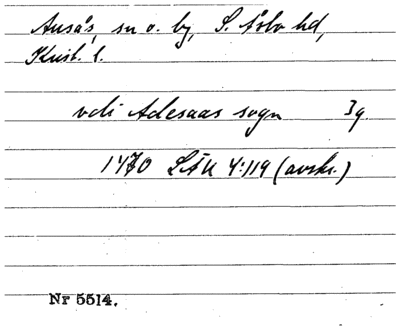 Ausås, sn o. by, S. Åsbo hd,
Krist. l.
vdi Adesaas sogn 3g
1470 LÄU 4:119 (avskr.)
Nr 5514.